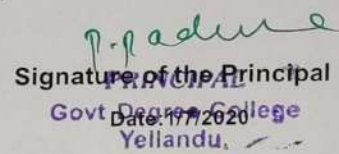 P. Padma
Signature of the Principal
PRINCIPAL
Govt Degree College
Date: 1/7/2020
Yellandu.